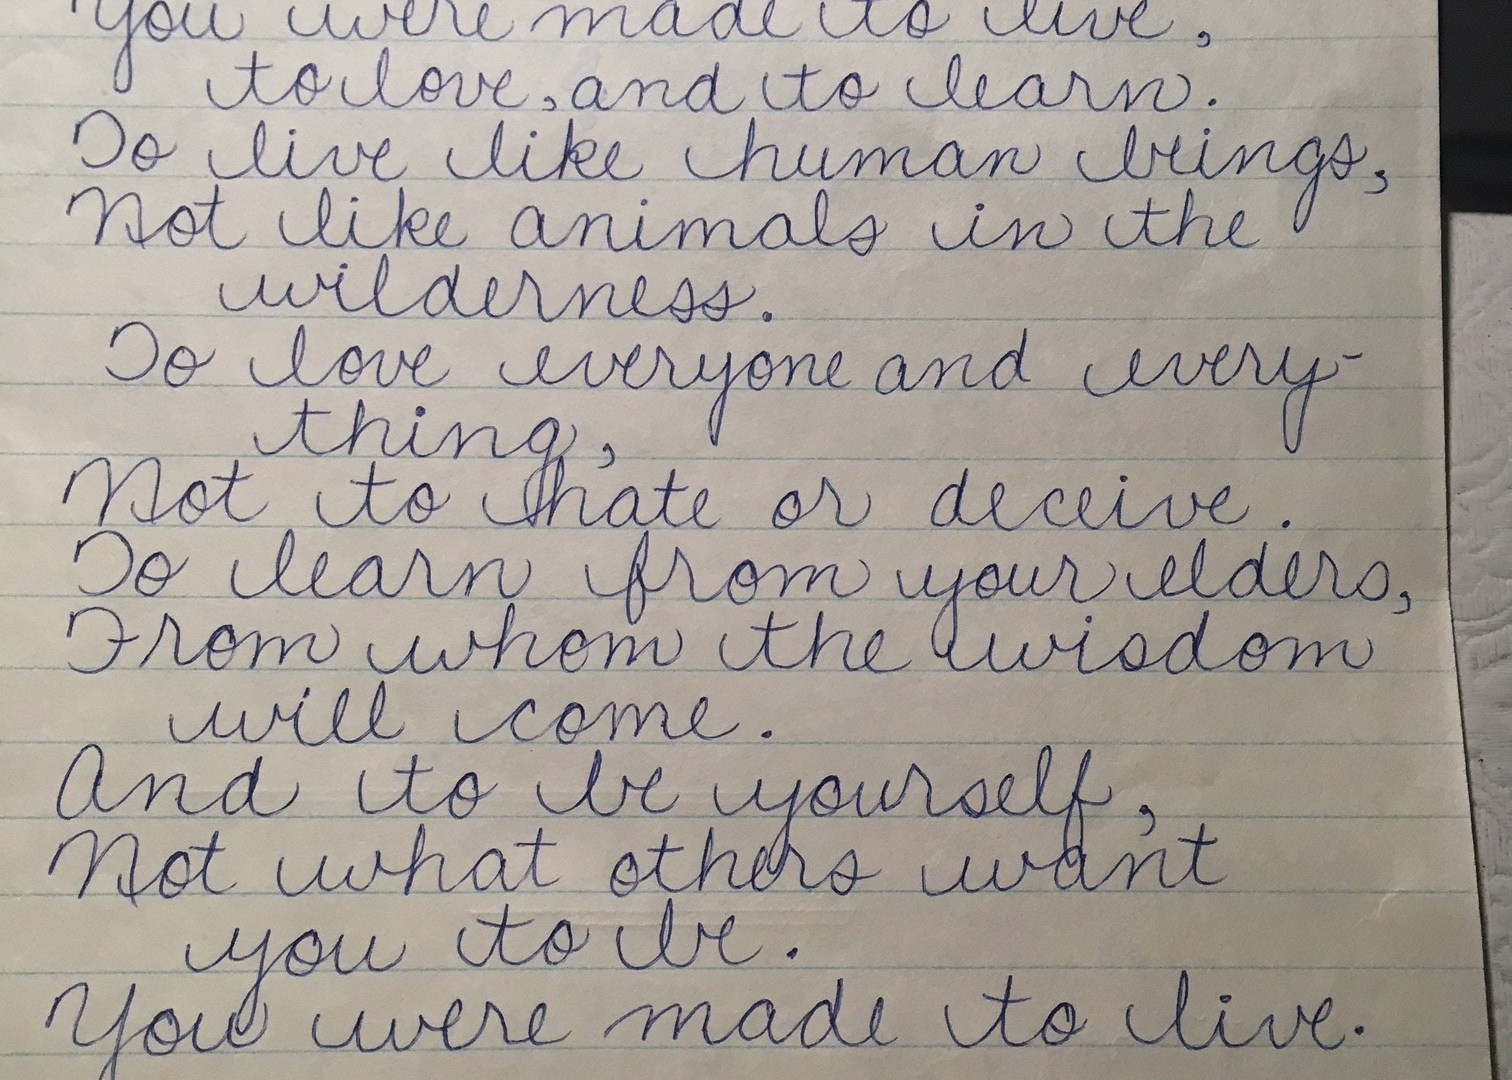 You were made to live,
to love, and to learn.
To live like human beings,
Not like animals in the
wilderness.
To love everyone and every-
thing,
Not to hate or deceive.
To learn from your elders,
From whom the wisdom
will come.
And to be yourself,
Not what others want
you to be.
You were made to live.